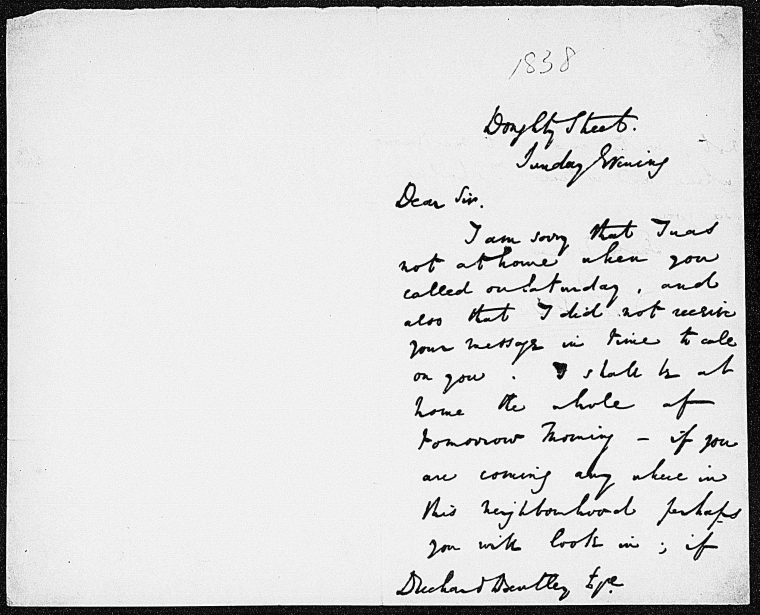 1838
Doughty Street.
Sunday Evening
Dear Sir.
I am sorry that I was
not at home when you
called on Saturday, and
also that I did not receive
your message in time to call
on you. I shall be at
home the whole of
tomorrow Morning - if you
are coming any where in
this neighbourhood perhaps
you will look in; if
Richard Bentley Esqre.